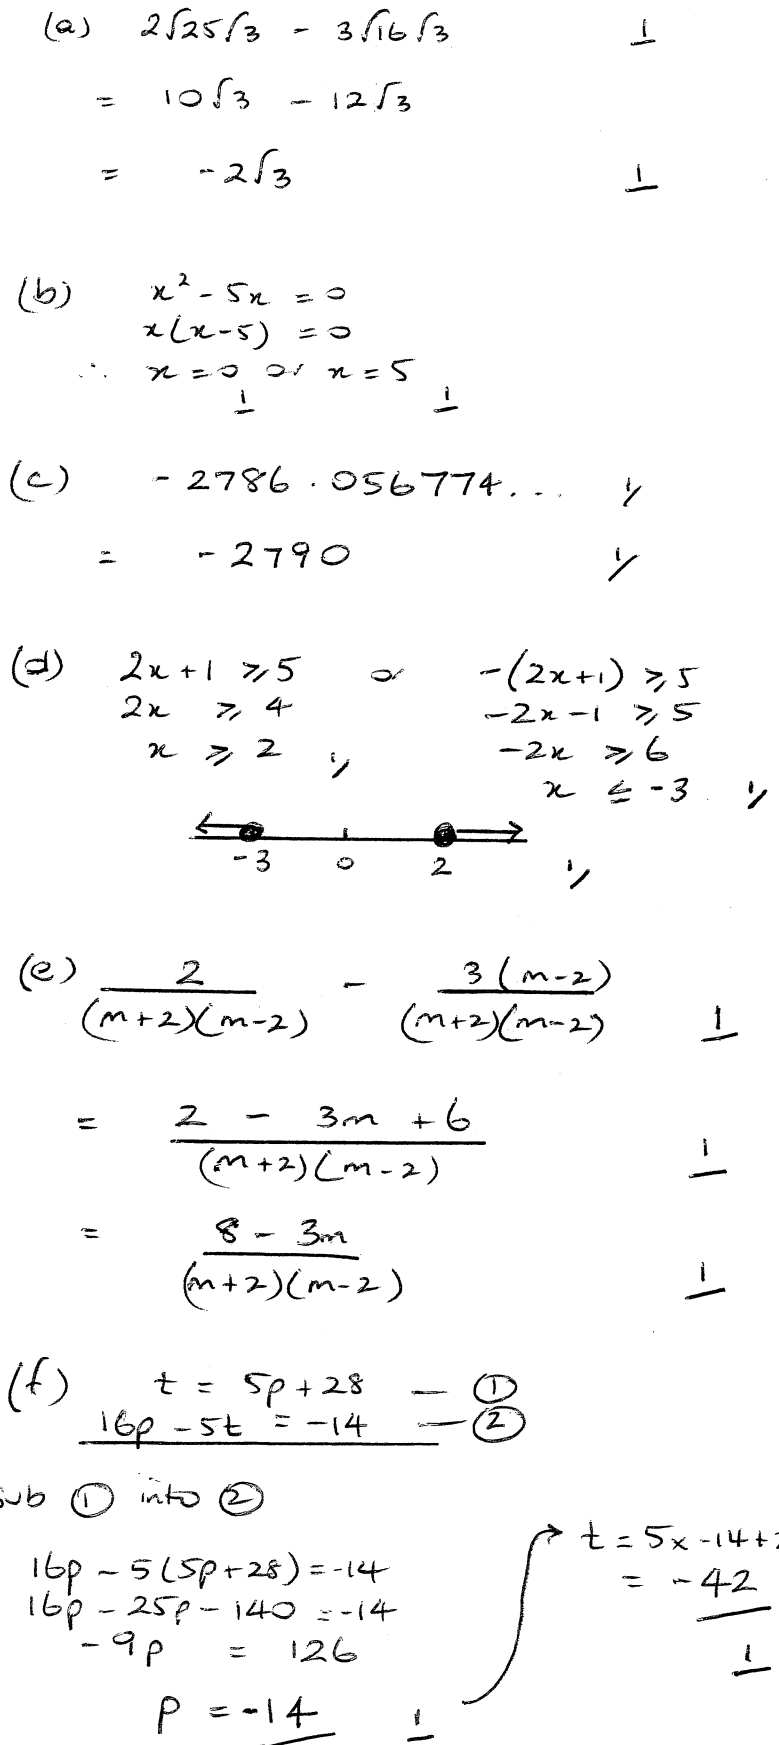 (a) 2√25√3 - 3√16√3 1
= 10√3 - 12√3
= -2√3 1
(b) x² - 5x = 0
x(x-5) = 0
∴ x = 0 or x = 5
1 1
(c) -2786.056774... 1
= -2790 1
(d) 2x+1 ≥ 5 or -(2x+1) ≥ 5
2x ≥ 4 -2x-1 ≥ 5
x ≥ 2 1 -2x ≥ 6
x ≤ -3 1
-3 0 2 1
(e) 2/((m+2)(m-2)) - 3(m-2)/((m+2)(m-2)) 1
= (2 - 3m + 6)/((m+2)(m-2)) 1
= (8 - 3m)/((m+2)(m-2)) 1
(f) t = 5p+28 — ①
16p - 5t = -14 — ②
sub ① into ②
16p - 5(5p+28) = -14
16p - 25p - 140 = -14
-9p = 126
p = -14 1
t = 5x-14+
= -42
1